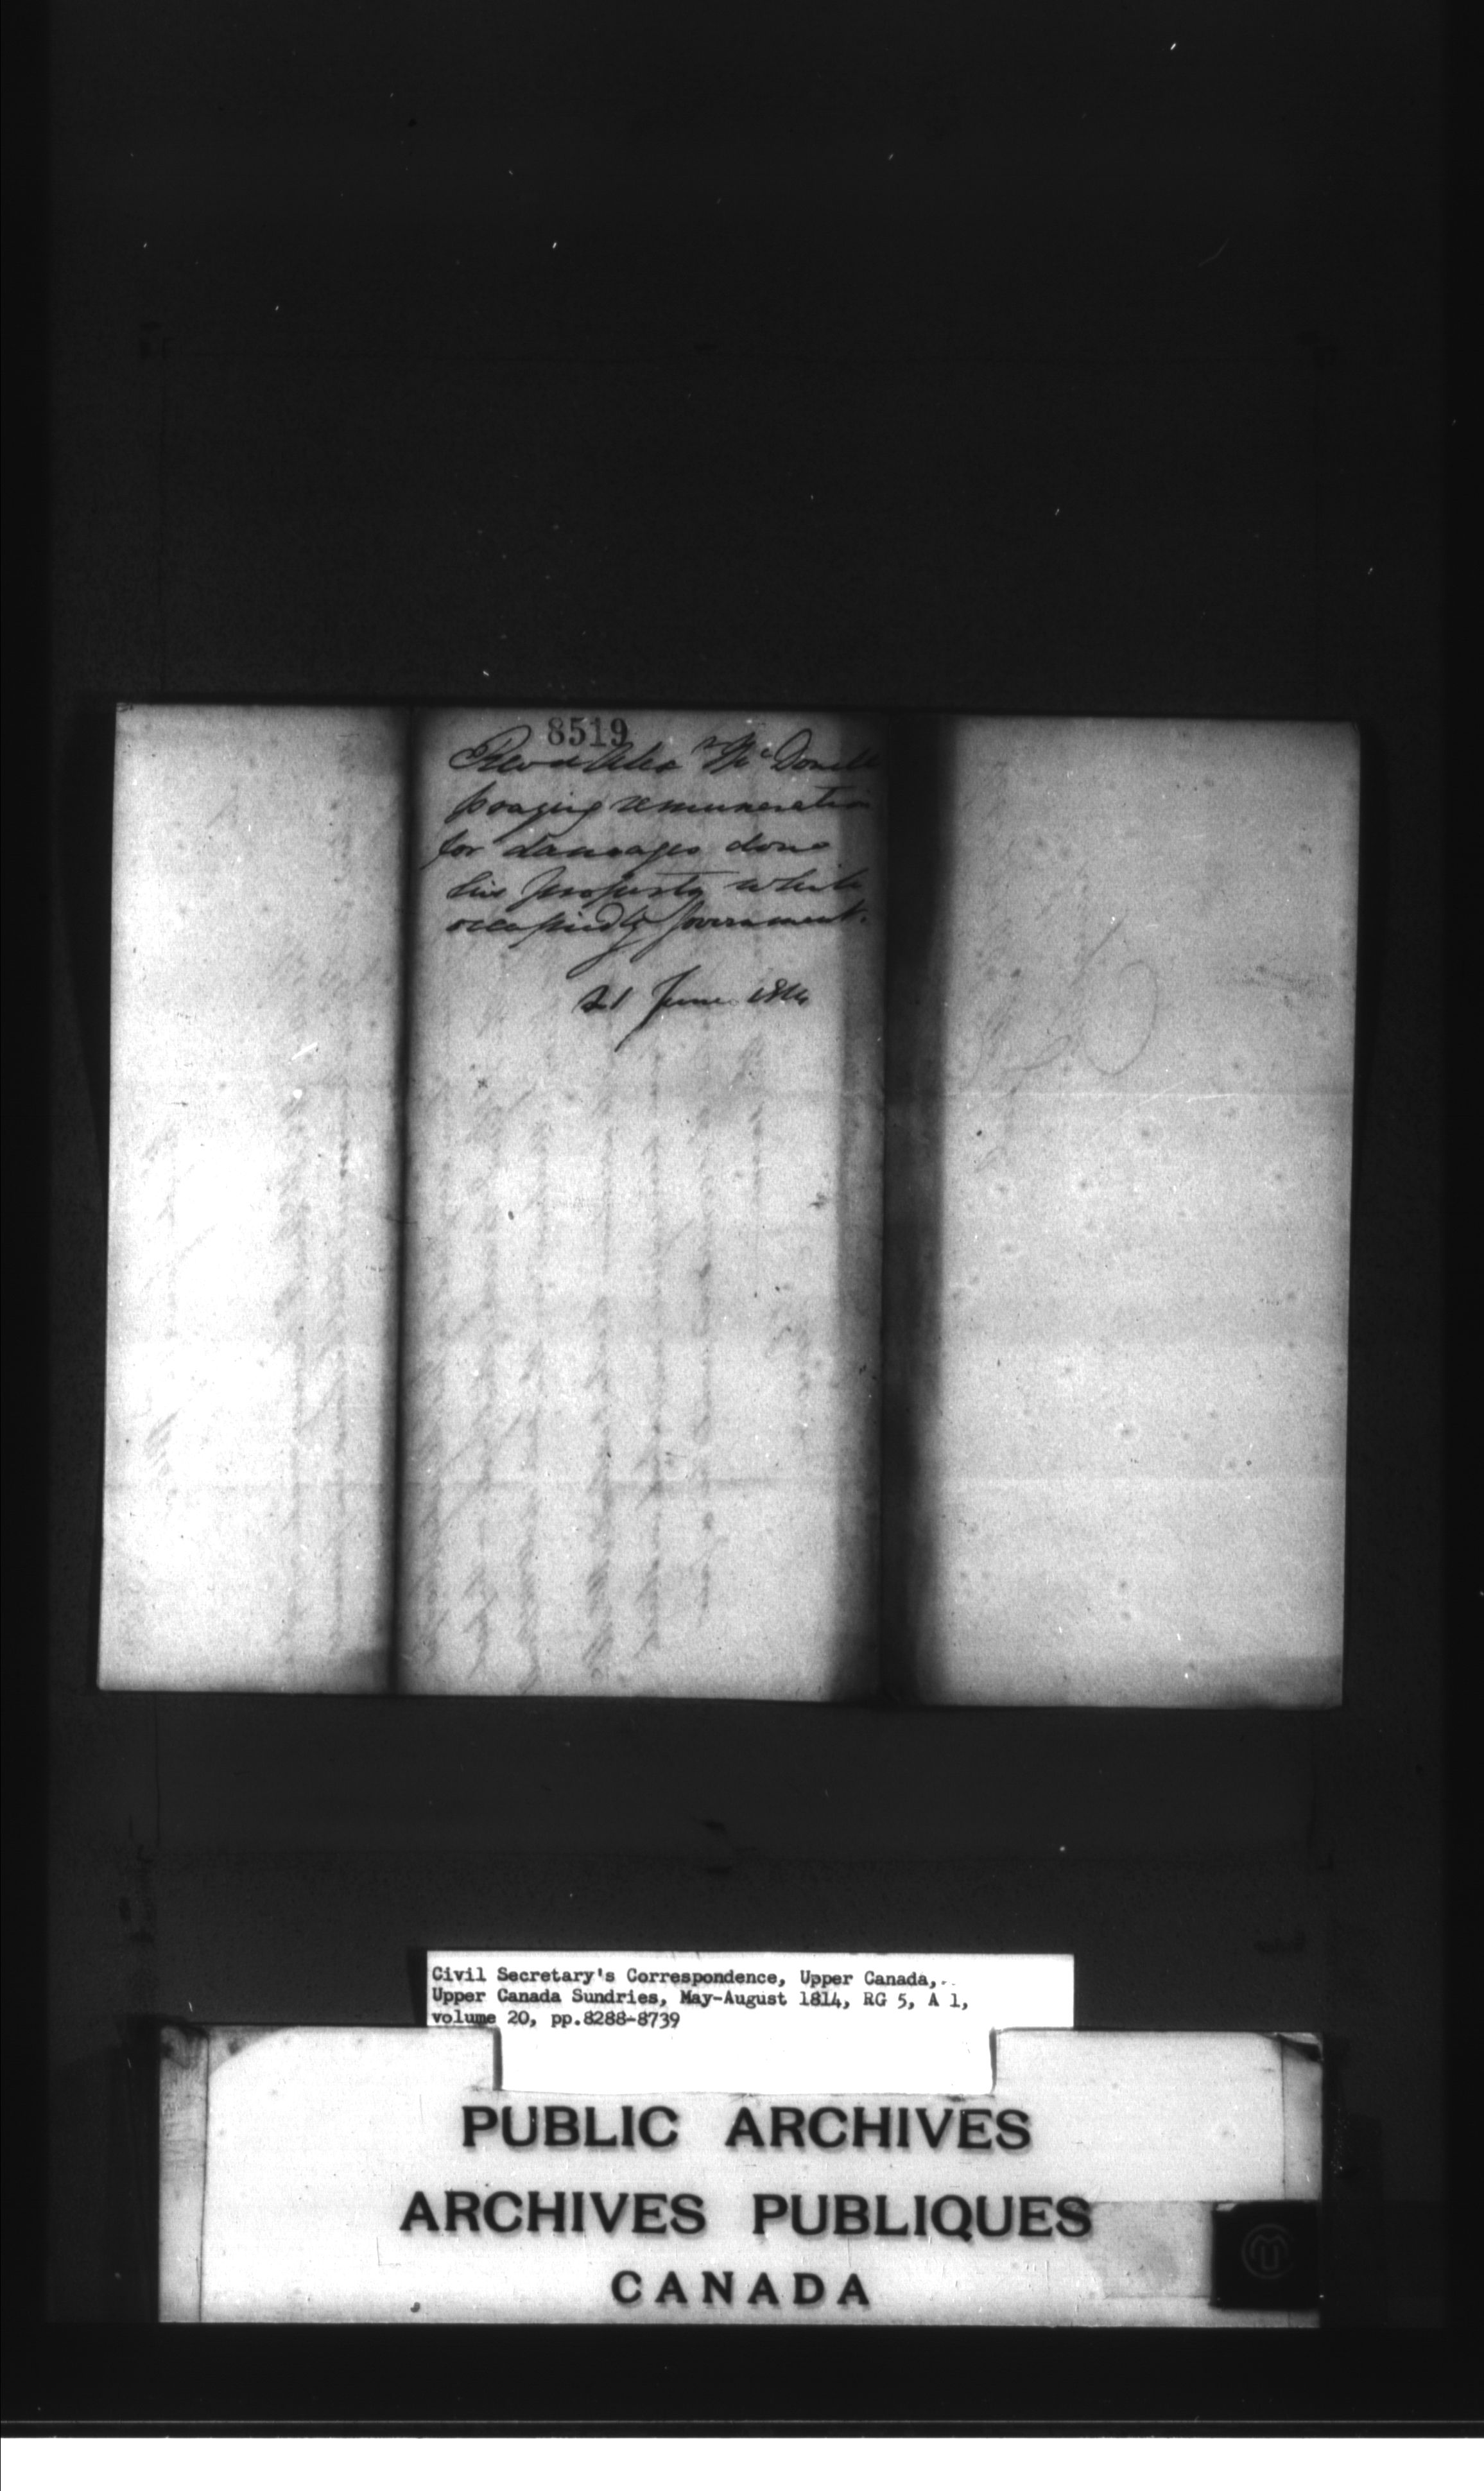 8519
Revd Alexr McDonell
praying remuneration
for damages done
his property while
occupied by Government.
21 June 1814
Civil Secretary's Correspondence, Upper Canada,
Upper Canada Sundries, May-August 1814, RG 5, A 1,
volume 20, pp.8288-8739
PUBLIC ARCHIVES
ARCHIVES PUBLIQUES
CANADA